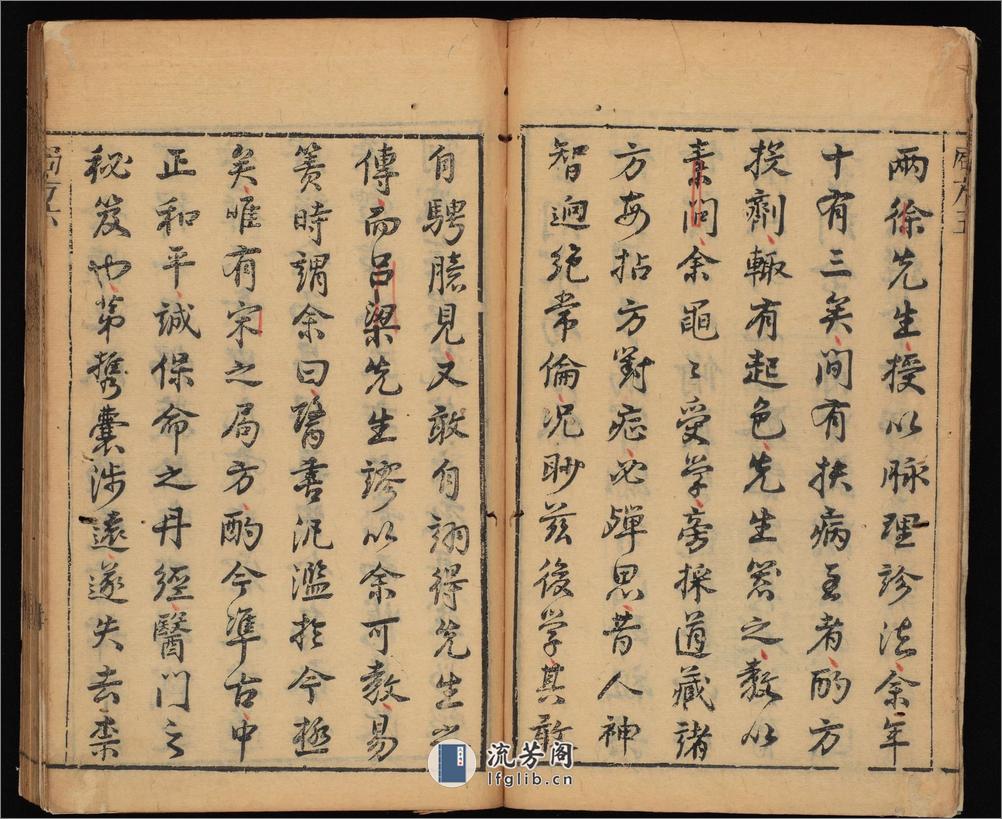 兩徐先生授以脉理診法余年
十有三矣間有扶病至者酌方
投劑輙有起色先生器之教以
素問余黽〻受学旁採道藏諸
方每拈方對症必殫思昔人神
智迥絶常倫况眇兹後学其敢
自騁臆見又敢自詡得先生
傳而呂梁先生謬以余可教易
簀時謂余曰醫書汎濫於今極
矣唯有宋之局方酌今準古中
正和平誠保命之丹經醫門之
秘笈也第携囊涉遠遂失去棗
流芳阁
lfglib.cn